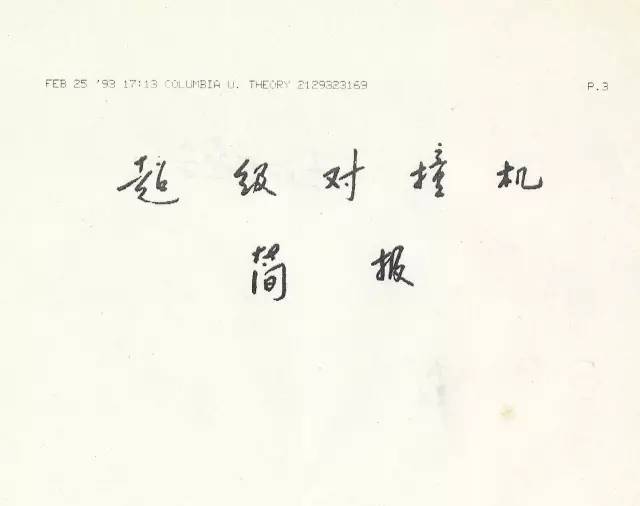 FEB 25 '93 17:13 COLUMBIA U. THEORY 2129323169 P.3
超级对撞机
简报